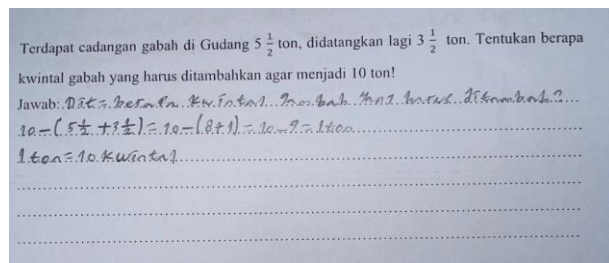 Terdapat cadangan gabah di Gudang 5 1/2 ton, didatangkan lagi 3 1/2 ton. Tentukan berapa
kwintal gabah yang harus ditambahkan agar menjadi 10 ton!
Jawab: Dit = berapa kwintal gabah yang harus ditambah?
10 - (5 1/2 + 3 1/2) = 10 - (8 + 1) = 10 - 9 = 1 ton
1 ton = 10 kwintal